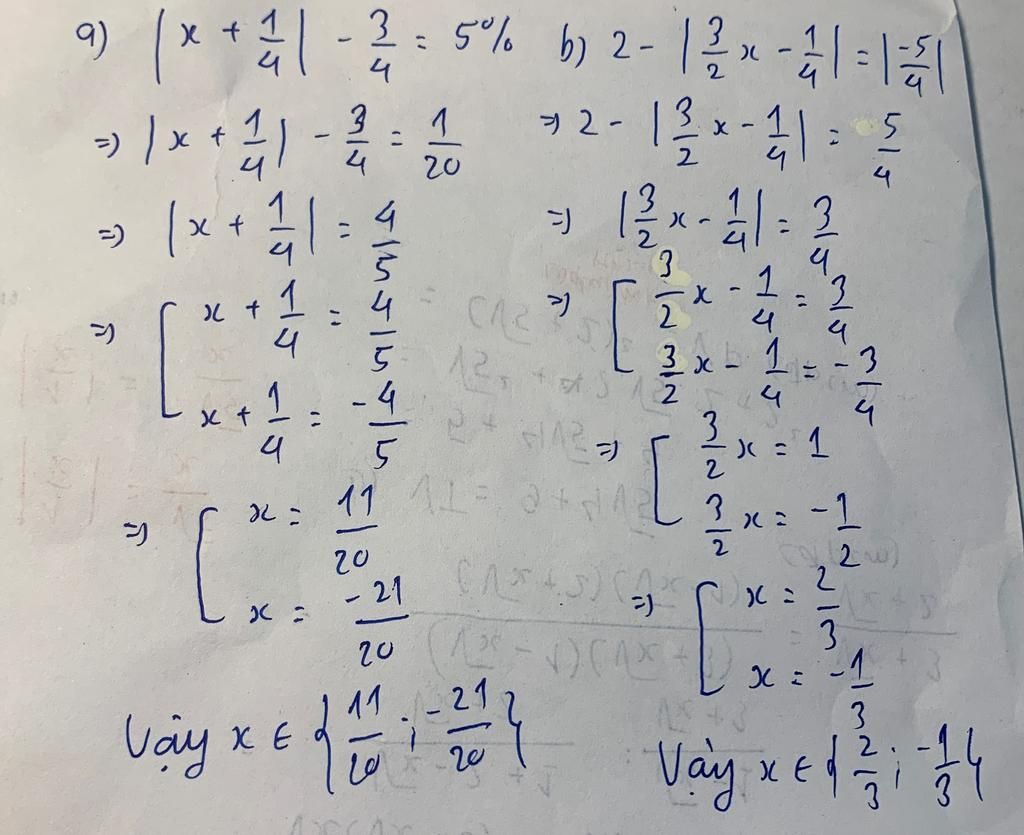 a) |x + 1/4| - 3/4 = 5%
=> |x + 1/4| - 3/4 = 1/20
=> |x + 1/4| = 4/5
=> [ x + 1/4 = 4/5
x + 1/4 = -4/5
=> [ x = 11/20
x = -21/20
Vậy x ∈ {11/20 ; -21/20}
b) 2 - |3/2 x - 1/4| = |-5/4|
=> 2 - |3/2 x - 1/4| = 5/4
=> |3/2 x - 1/4| = 3/4
=> [ 3/2 x - 1/4 = 3/4
3/2 x - 1/4 = -3/4
=> [ 3/2 x = 1
3/2 x = -1/2
=> [ x = 2/3
x = -1/3
Vậy x ∈ {2/3 ; -1/3}